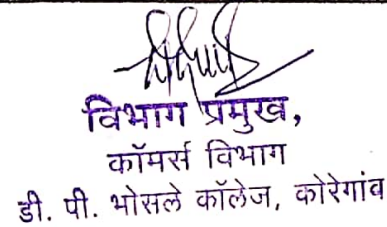 विभाग प्रमुख,
कॉमर्स विभाग
डी. पी. भोसले कॉलेज, कोरेगांव